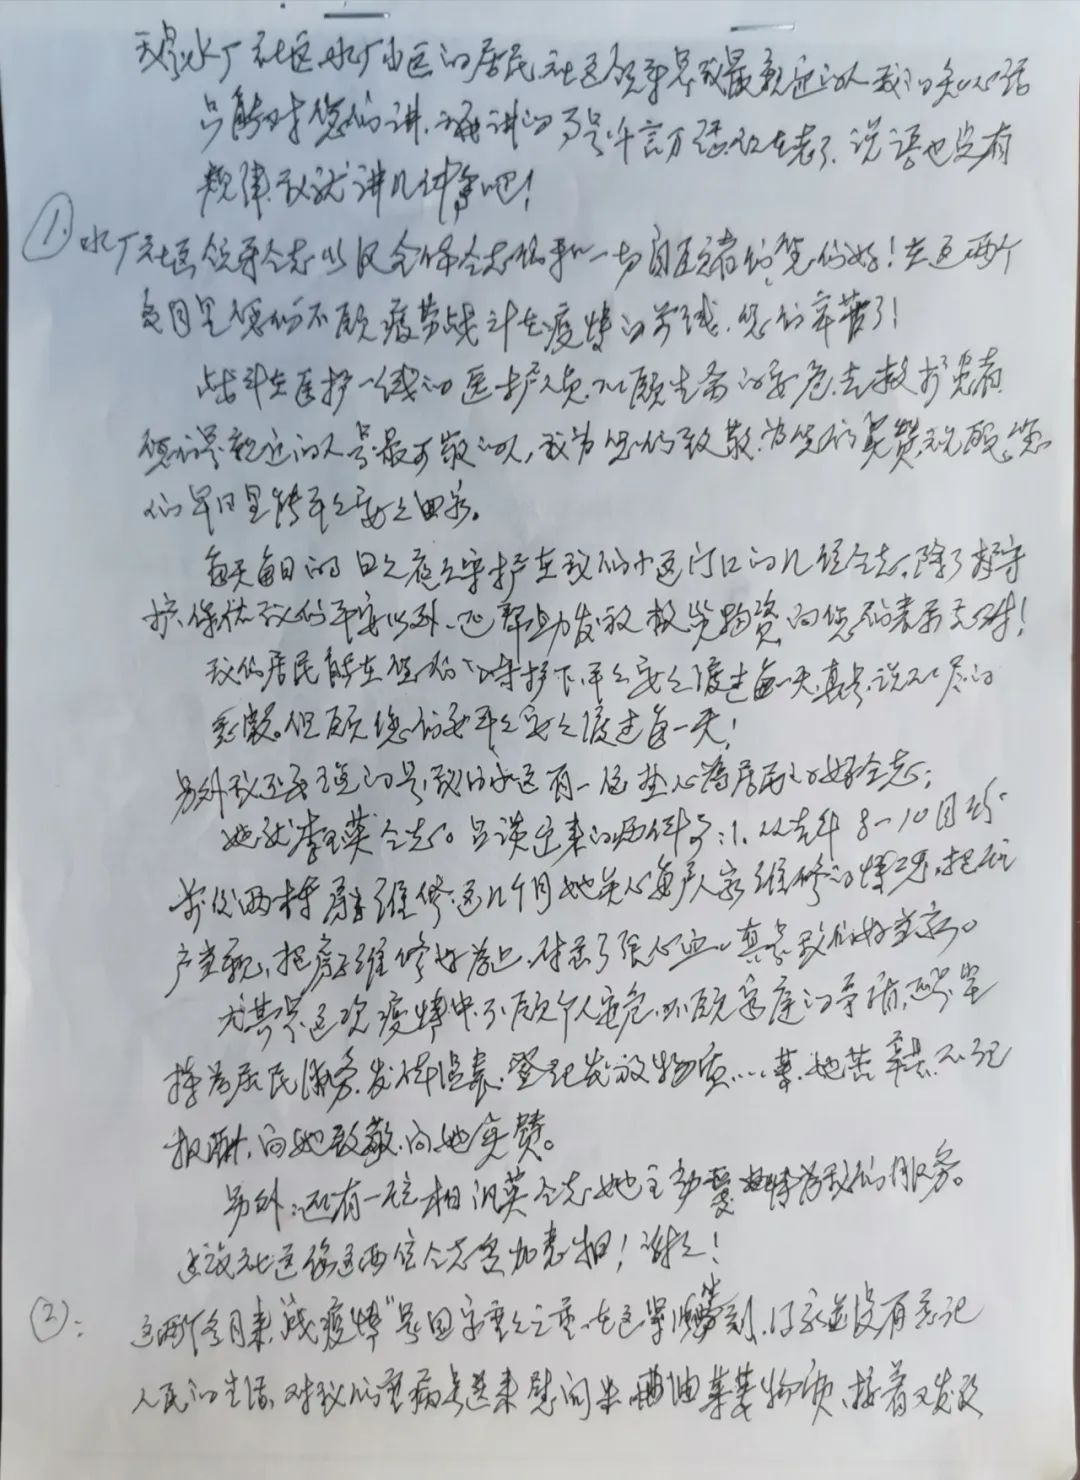 我是水厂社区水厂小区的居民,社区领导是我最亲近的人,我的知心话
只能对您们讲,要讲的可是千言万语,人老了,说话也没有
规律,我就讲几件事吧!
①. 水厂社区领导仝志以及全体仝志们和一切自愿者们您们好!在这两个
多月里您们不顾疲劳战斗在疫情的前线,您们辛苦了!
战斗在医护一线的医护人员,不顾生命的安危,去救护患者,
您们是亲近的人,是最可敬的人,我为您们致敬,为您们笑赞,祝愿您
们早日里能平平安安回家。
每天每日的日日夜夜守护在我们小区门口的几位仝志,除了守
护、保佑我们平安以外,还帮助发放救灾物资,向您们表示感谢!
我们居民能在您们的守护下,平平安安渡过每一天,真是说不尽的
感激。但愿您们要平平安安渡过每一天!
另外我还要说的是,我们小区有一位热心为居民的好仝志:
她就李玉英仝志。只谈近来的两件事:1. 从去年8-10月份
前后两栋房子维修,这几个月她关心每户人家维修的情况,把住
户当亲,把房子维修好为止,付出了很心血,真是我们的好当家。
尤其是这次疫情中,不顾个人安危,不顾家庭的,坚
持为居民服务,发体温表,登记发放物资……菜,她苦辛苦,不记
报酬,向她致敬,向她笑赞。
另外:还有一位相汉英仝志,她主动热情为我们服务。
建议社区给这两位仝志多加表扬!谢谢!
②: 这两个多月来“战疫情”是国家重重之重,在这紧张时刻,国家並没有忘记
人民的生活,对我们重病号送来慰问米、面、油、菜等物质,接着又发放